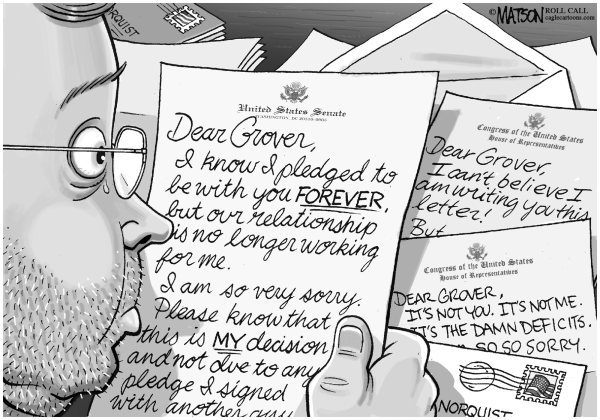 ©MATSON ROLL CALL
caglecartoons.com
RQUIST
United States Senate
WASHINGTON, DC
Dear Grover,
I know I pledged to
be with you FOREVER,
but our relationship
is no longer working
for me.
I am so very sorry.
Please know that
this is MY decision
and not due to any
pledge I signed
with another guy
Congress of the United States
House of Representatives
Dear Grover,
I can't believe I
am writing you this
letter!
But
Congress of the United States
House of Representatives
DEAR GROVER,
IT'S NOT YOU. IT'S NOT ME.
IT'S THE DAMN DEFICITS.
SO SO SORRY.
NORQUIST